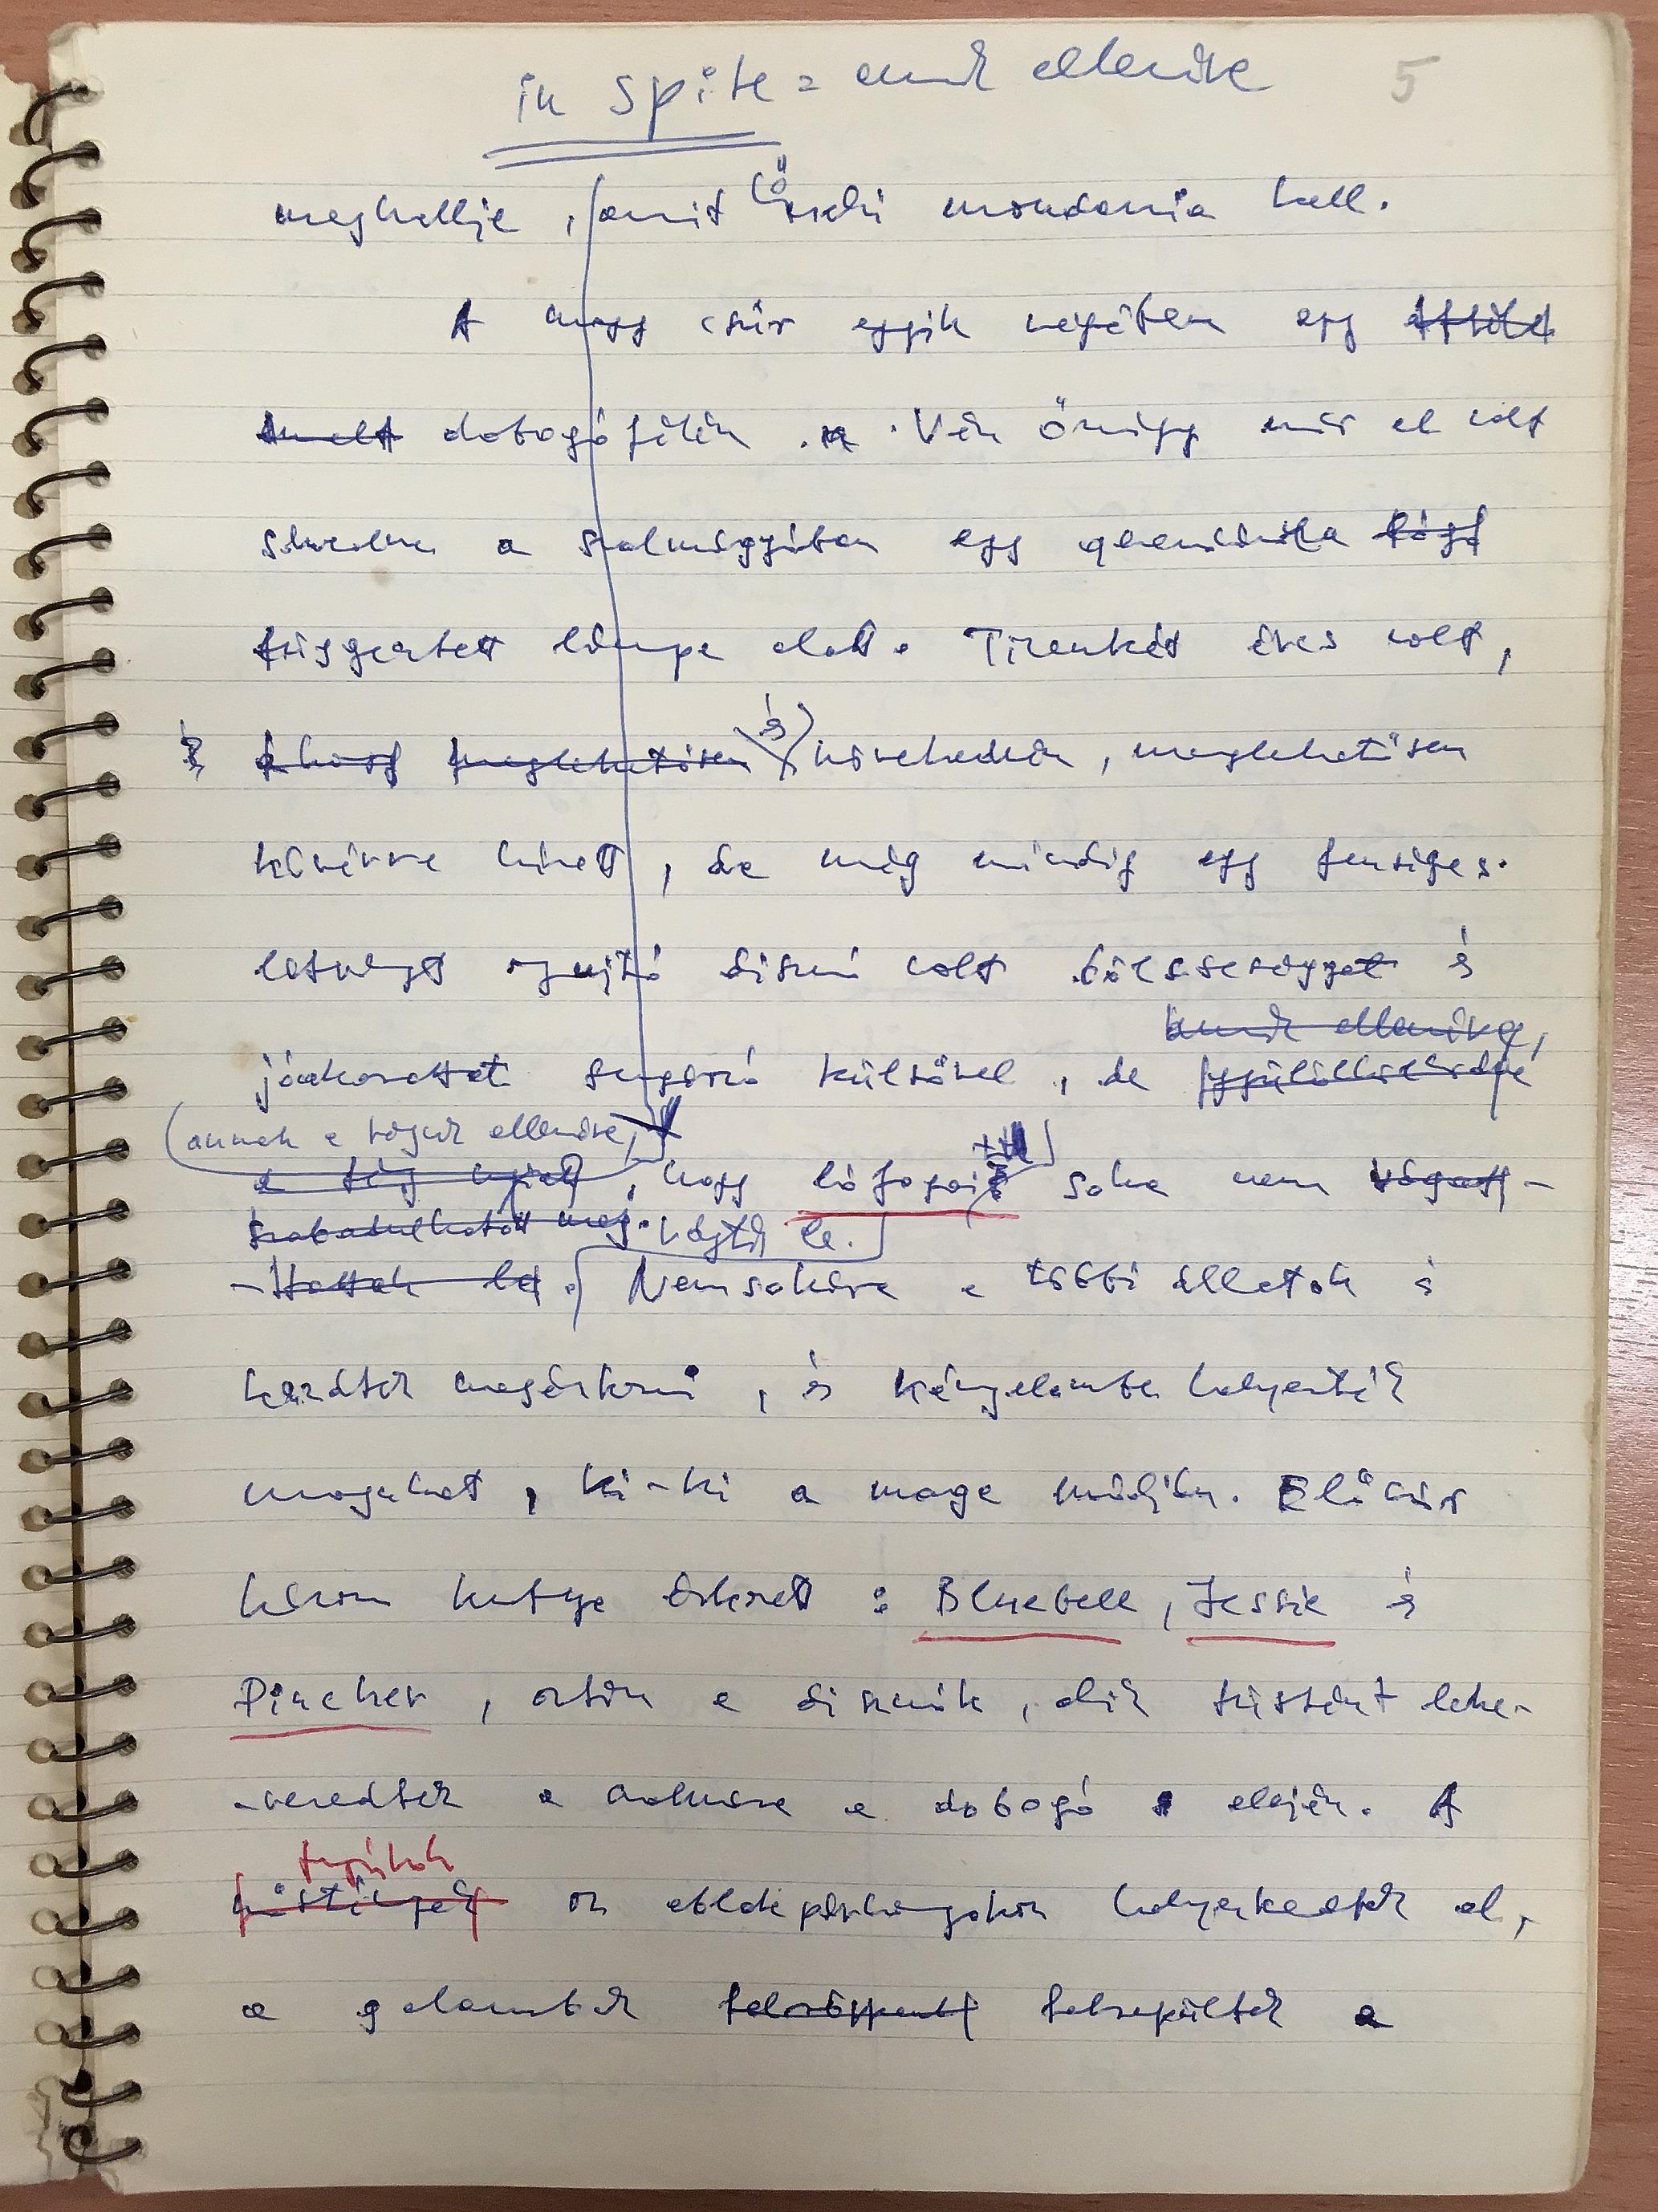 in spite = annak ellenére 5
meghallja, amit Őrnagy mondania kell.
A nagy csűr egyik végében egy
dobogófélén. Vén Őrnagy már el volt
helyezve a szalmaágyában egy gerendára
függesztett lámpa alatt. Tizenkét éves volt,
és növekedvén, meglehetősen
kövérre hízott, de még mindig egy fenséges
látványt nyujtó disznó volt bölcsességet és
annak ellenére,
jóakaratot sugárzó külsővel, de
(annak a ténynek ellenére,)
, hogy lófogait soha nem
szabadulhatott meg. vágták le.
Nemsokára a többi állatok is
kezdtek megérkezni, és kényelembe helyezték
magukat, ki-ki a maga módján. Először
három kutya érkezett: Bluebell, Jessie és
Pincher, aztán a disznók, akik tüstént lehe-
-veredtek a szalmára a dobogó elején. A
tyúkok
az ablakpárkányokon helyezkedtek el,
a galambok felröppentek felrepültek a